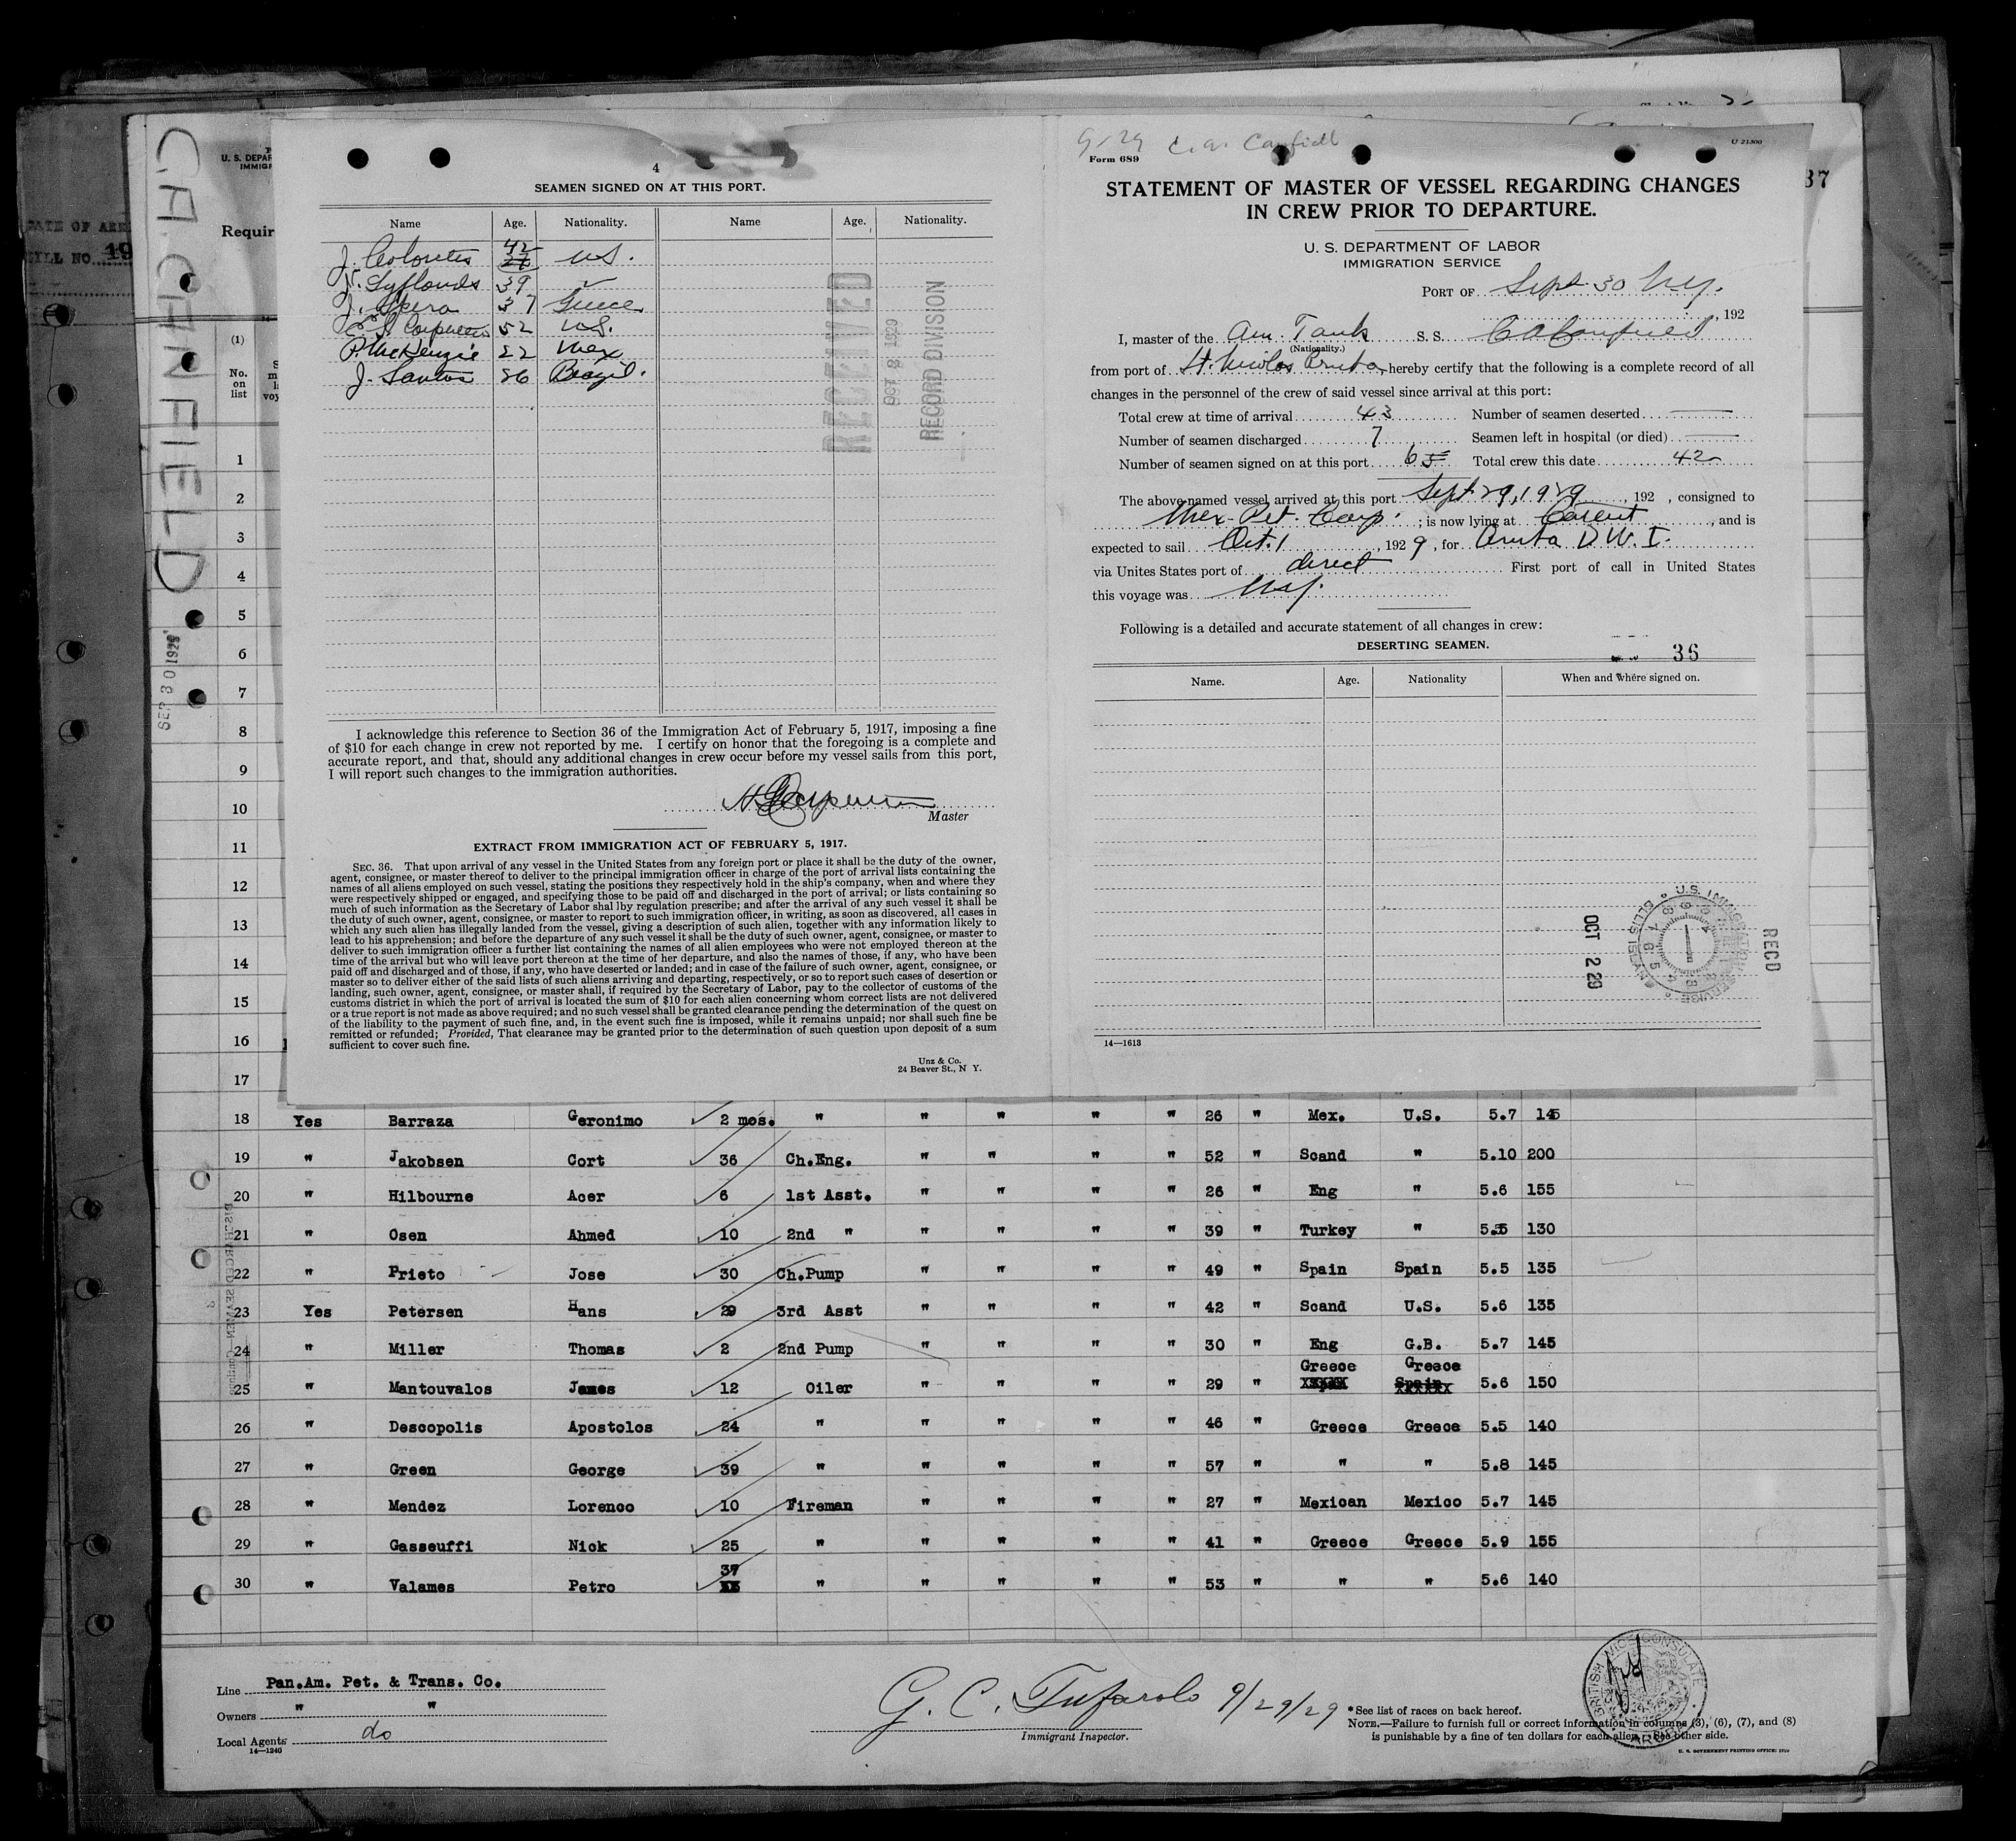 C.A. CANFIELD
SEP 30 1929
U. S. DEPAR
IMMIGR
Requir
(1)
No.
on
list
4
SEAMEN SIGNED ON AT THIS PORT.
Name Age. Nationality. Name Age. Nationality.
42
U.S.
39
37 Greece
52 U.S.
P. McKenzie 22 Mex
J. Santos 26 Brazil.
RECEIVED
OCT 8 1929
RECORD DIVISION
I acknowledge this reference to Section 36 of the Immigration Act of February 5, 1917, imposing a fine
of $10 for each change in crew not reported by me. I certify on honor that the foregoing is a complete and
accurate report, and that, should any additional changes in crew occur before my vessel sails from this port,
I will report such changes to the immigration authorities.
Master
EXTRACT FROM IMMIGRATION ACT OF FEBRUARY 5, 1917.
SEC. 36. That upon arrival of any vessel in the United States from any foreign port or place it shall be the duty of the owner,
agent, consignee, or master thereof to deliver to the principal immigration officer in charge of the port of arrival lists containing the
names of all aliens employed on such vessel, stating the positions they respectively hold in the ship's company, when and where they
were respectively shipped or engaged, and specifying those to be paid off and discharged in the port of arrival; or lists containing so
much of such information as the Secretary of Labor shal lby regulation prescribe; and after the arrival of any such vessel it shall be
the duty of such owner, agent, consignee, or master to report to such immigration officer, in writing, as soon as discovered, all cases in
which any such alien has illegally landed from the vessel, giving a description of such alien, together with any information likely to
lead to his apprehension; and before the departure of any such vessel it shall be the duty of such owner, agent, consignee, or master to
deliver to such immigration officer a further list containing the names of all alien employees who were not employed thereon at the
time of the arrival but who will leave port thereon at the time of her departure, and also the names of those, if any, who have been
paid off and discharged and of those, if any, who have deserted or landed; and in case of the failure of such owner, agent, consignee, or
master so to deliver either of the said lists of such aliens arriving and departing, respectively, or so to report such cases of desertion or
landing, such owner, agent, consignee, or master shall, if required by the Secretary of Labor, pay to the collector of customs of the
customs district in which the port of arrival is located the sum of $10 for each alien concerning whom correct lists are not delivered
or a true report is not made as above required; and no such vessel shall be granted clearance pending the determination of the quest on
of the liability to the payment of such fine, and, in the event such fine is imposed, while it remains unpaid; nor shall such fine be
remitted or refunded; Provided, That clearance may be granted prior to the determination of such question upon deposit of a sum
sufficient to cover such fine.
Unz & Co.
24 Beaver St., N Y.
9-29 C.A. Canfield
Form 689
U-21300
37
STATEMENT OF MASTER OF VESSEL REGARDING CHANGES
IN CREW PRIOR TO DEPARTURE.
U. S. DEPARTMENT OF LABOR
IMMIGRATION SERVICE
PORT OF Sept 30 N.Y.
, 192
I, master of the Am. Tank S. S. C A Canfield
(Nationality.)
from port of St. Nicolas Aruba, hereby certify that the following is a complete record of all
changes in the personnel of the crew of said vessel since arrival at this port:
Total crew at time of arrival 43 Number of seamen deserted
Number of seamen discharged 7 Seamen left in hospital (or died)
Number of seamen signed on at this port 6 5 Total crew this date 42
The above-named vessel arrived at this port Sept 29, 1929, 192 , consigned to
Mex. Pet. Corp. ; is now lying at Carteret, and is
expected to sail Oct. 1, 1929, for Aruba D.W.I.
via Unites States port of direct First port of call in United States
this voyage was
Following is a detailed and accurate statement of all changes in crew:
DESERTING SEAMEN.
36
Name. Age. Nationality When and Where signed on.
RECD
OCT 2 29
U.S. IMMIGRATION SERVICE ELLIS ISLAND
14—1613
1
2
3
4
5
6
7
8
9
10
11
12
13
14
15
16
17
18 Yes Barraza Geronimo 2 mos. " " " " " 26 " Mex. U.S. 5.7 145
19 " Jakobsen Cort 36 Ch.Eng. " " " " 52 " Scand " 5.10 200
20 " Hilbourne Acer 6 1st Asst. " " " " 26 " Eng " 5.6 155
21 " Osen Ahmed 10 2nd " " " " " 39 " Turkey " 5.5 130
22 " Prieto Jose 30 Ch.Pump " " " " 49 " Spain Spain 5.5 135
23 Yes Petersen Hans 29 3rd Asst " " " " 42 " Scand U.S. 5.6 135
24 " Miller Thomas 2 2nd Pump " " " " 30 " Eng G.B. 5.7 145
Greece Greece
25 " Mantouvalos James 12 Oiler " " " " 29 " Spain 5.6 150
26 " Descopolis Apostolos 24 " " " " " 46 " Greece Greece 5.5 140
27 " Green George 39 " " " " " 57 " " " 5.8 145
28 " Mendez Lorenco 10 Fireman " " " " 27 " Mexican Mexico 5.7 145
29 " Gasseuffi Nick 25 " " " " " 41 " Greece Greece 5.9 155
37
30 " Valames Petro " " " " " 53 " " " 5.6 140
Line Pan.Am. Pet. & Trans. Co.
Owners " "
Local Agents do
14—1240
G. C. Tufarolo 9/29/29
Immigrant Inspector.
BRITISH VICE CONSULATE
ARUBA
*See list of races on back hereof.
NOTE.—Failure to furnish full or correct information in columns (3), (6), (7), and (8)
is punishable by a fine of ten dollars for each alien. See other side.
U. S. GOVERNMENT PRINTING OFFICE: 1929